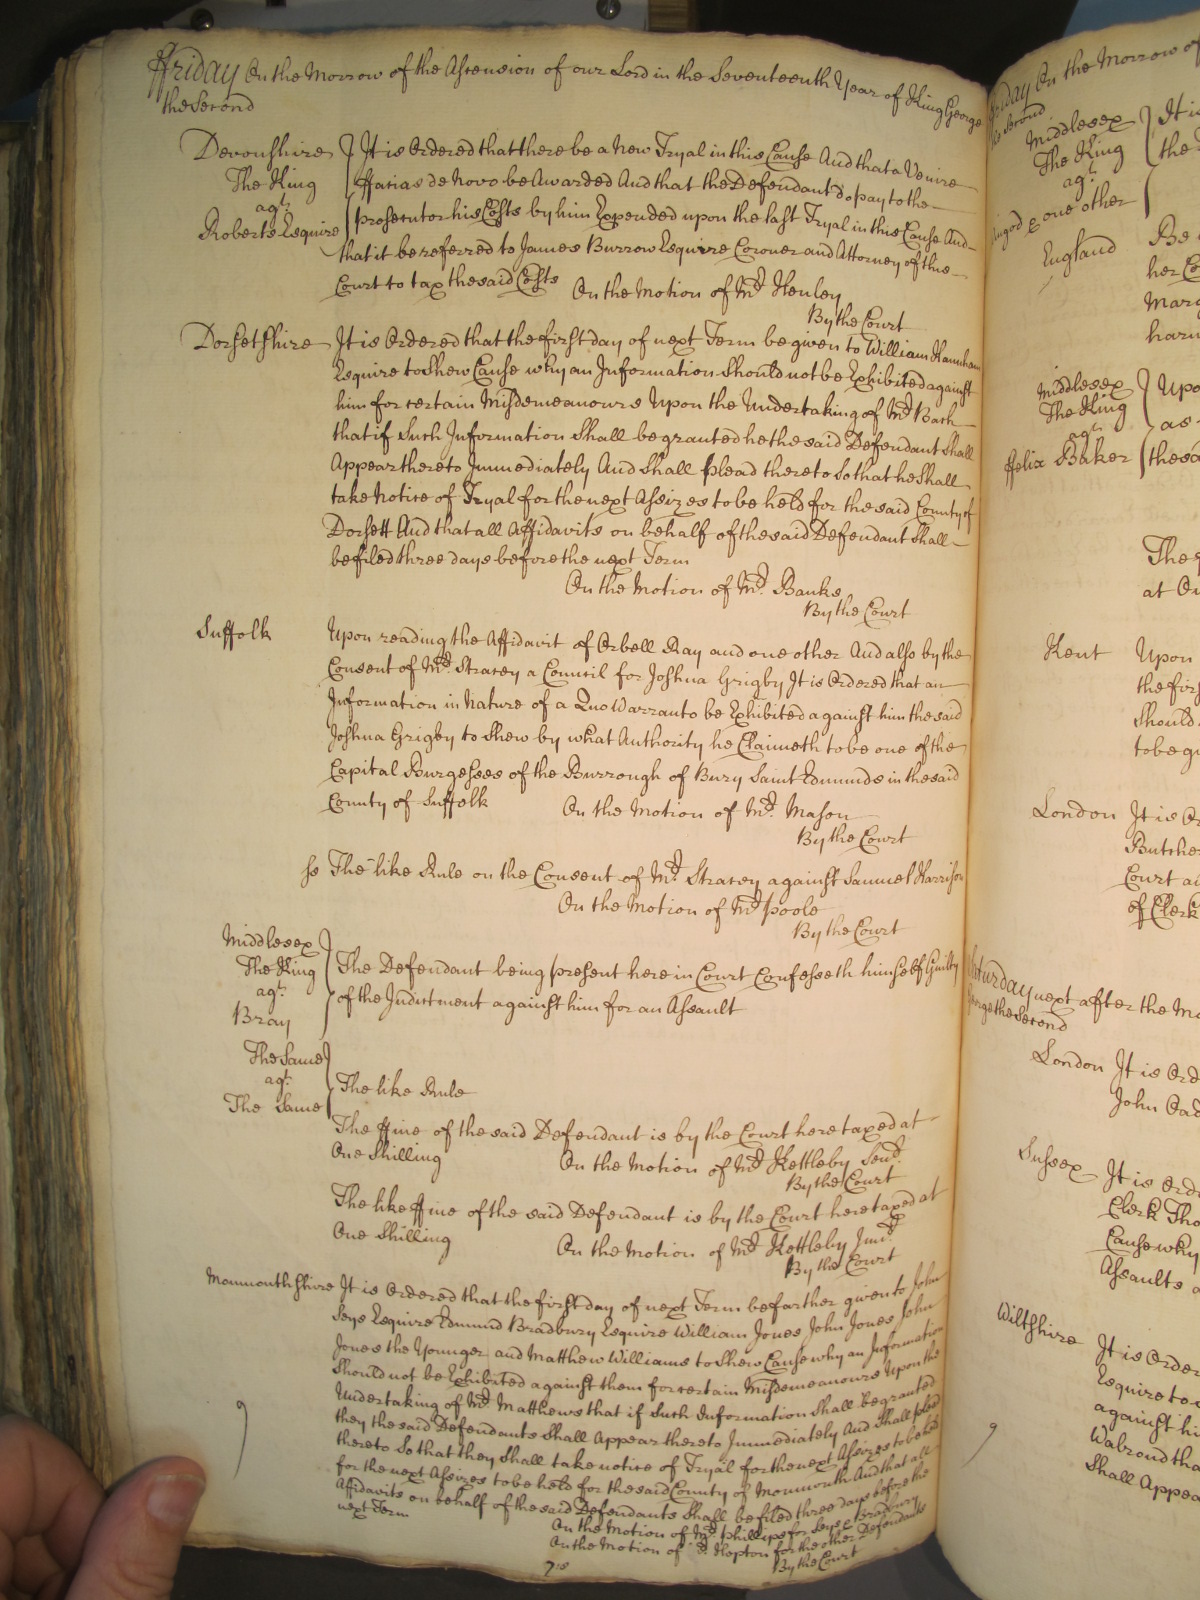 Friday On the Morrow of the Ascension of our Lord in the Seventeenth Year of King George
the Second
Devonshire
The King
agt.
Roberts Esquire
It is Ordered that there be a New Tryal in this Cause And that a Venire
ffacias de Novo be Awarded And that the Defendant do pay to the
prosecutor his Costs by him Expended upon the last Tryal in this Cause And
that it be referred to James Burrow Esquire Coroner and Attorney of this
Court to tax the said Costs
On the Motion of Mr. Henley
By the Court
Dorsetshire It is Ordered that the first day of next Term be given to William
Esquire to Shew Cause why an Information Should not be Exhibited against
him for certain Misdemeanours Upon the Undertaking of Mr. Bath
that if Such Information Shall be granted he the said Defendant Shall
Appear thereto Immediately And Shall plead thereto So that he Shall
take Notice of Tryal for the next Assizes to be held for the said County of
Dorsett And that all Affidavits on behalf of the said Defendant Shall
be filed three days before the next Term
On the Motion of Mr. Banks
By the Court
Suffolk Upon reading the Affidavit of Orbell Ray and one other And also by the
Consent of Mr. Stracey a Council for Joshua Grigby It is Ordered that an
Information in Nature of a Quo Warranto be Exhibited against him the said
Joshua Grigby to Shew by what Authority he Claimeth to be one of the
Capital Burgesses of the Burrough of Bury Saint Edmunds in the said
County of Suffolk
On the Motion of Mr. Mason
By the Court
ss The like Rule on the Consent of Mr. Stracey against Samuel Harrison
On the Motion of Mr. Poole
By the Court
Middlesex
The King
agt.
Bray
The Defendant being present here in Court Confesseth himself Guilty
of the Indictment against him for an Assault
The Same
agt.
The Same
The like Rule
The ffine of the said Defendant is by the Court here taxed at
One Shilling
On the Motion of Mr. Kettleby Senr.
By the Court
The like ffine of the said Defendant is by the Court here taxed at
One Shilling
On the Motion of Mr. Kettleby Junr.
By the Court
Monmouthshire It is Ordered that the first day of next Term be farther given to John
Seys Esquire Edmund Bradbury Esquire William Jones John Jones John
Jones the Younger and Matthew Williams to Shew Cause why an Information
Should not be Exhibited against them for certain Misdemeanours Upon the
Undertaking of Mr. Matthews that if Such Information Shall be granted
they the said Defendants Shall Appear thereto Immediately And Shall plead
thereto So that they Shall take notice of Tryal for the next Assizes to be held
for the next Assizes to be held for the said County of Monmouth And that all
Affidavits on behalf of the said Defendants Shall be filed three days before the
next Term
On the Motion of Mr. Phillips for Seys & Bradbury
On the Motion of Mr. Hopton for the other Defendants
By the Court
Friday On the Morrow of
the Second
Middlesex
The King
agt.
& one other
It is
the
England
Be
her Co
Marg
harn
Middlesex
The King
agt.
ffelix Baker
Upo
as
the sa
The
at On
Kent Upon
the firs
Should
to be g
London It is Or
Butche
Court a
of Clerk
Saturday next after the Mo
George the Second
London It is Ord
John Oa
Sussex It is Orde
Clerk Tho
Cause why
Assaults a
Wiltshire It is Order
Esquire to
against hi
Walrond tha
Shall Appea